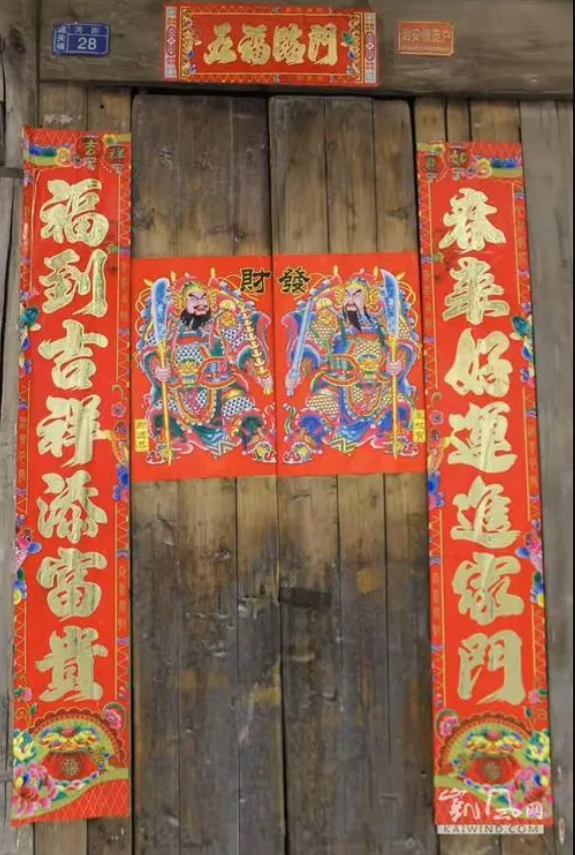 河街
28
五福臨門
治安模范户
春来好運進家門
福到吉祥添富貴
發財
凯风网
KAIWIND.COM